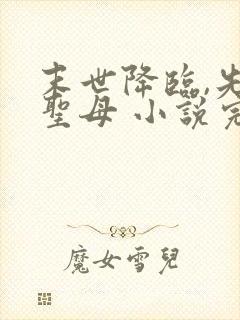 末世降臨,先
聖母 小說完
魔女雪兒